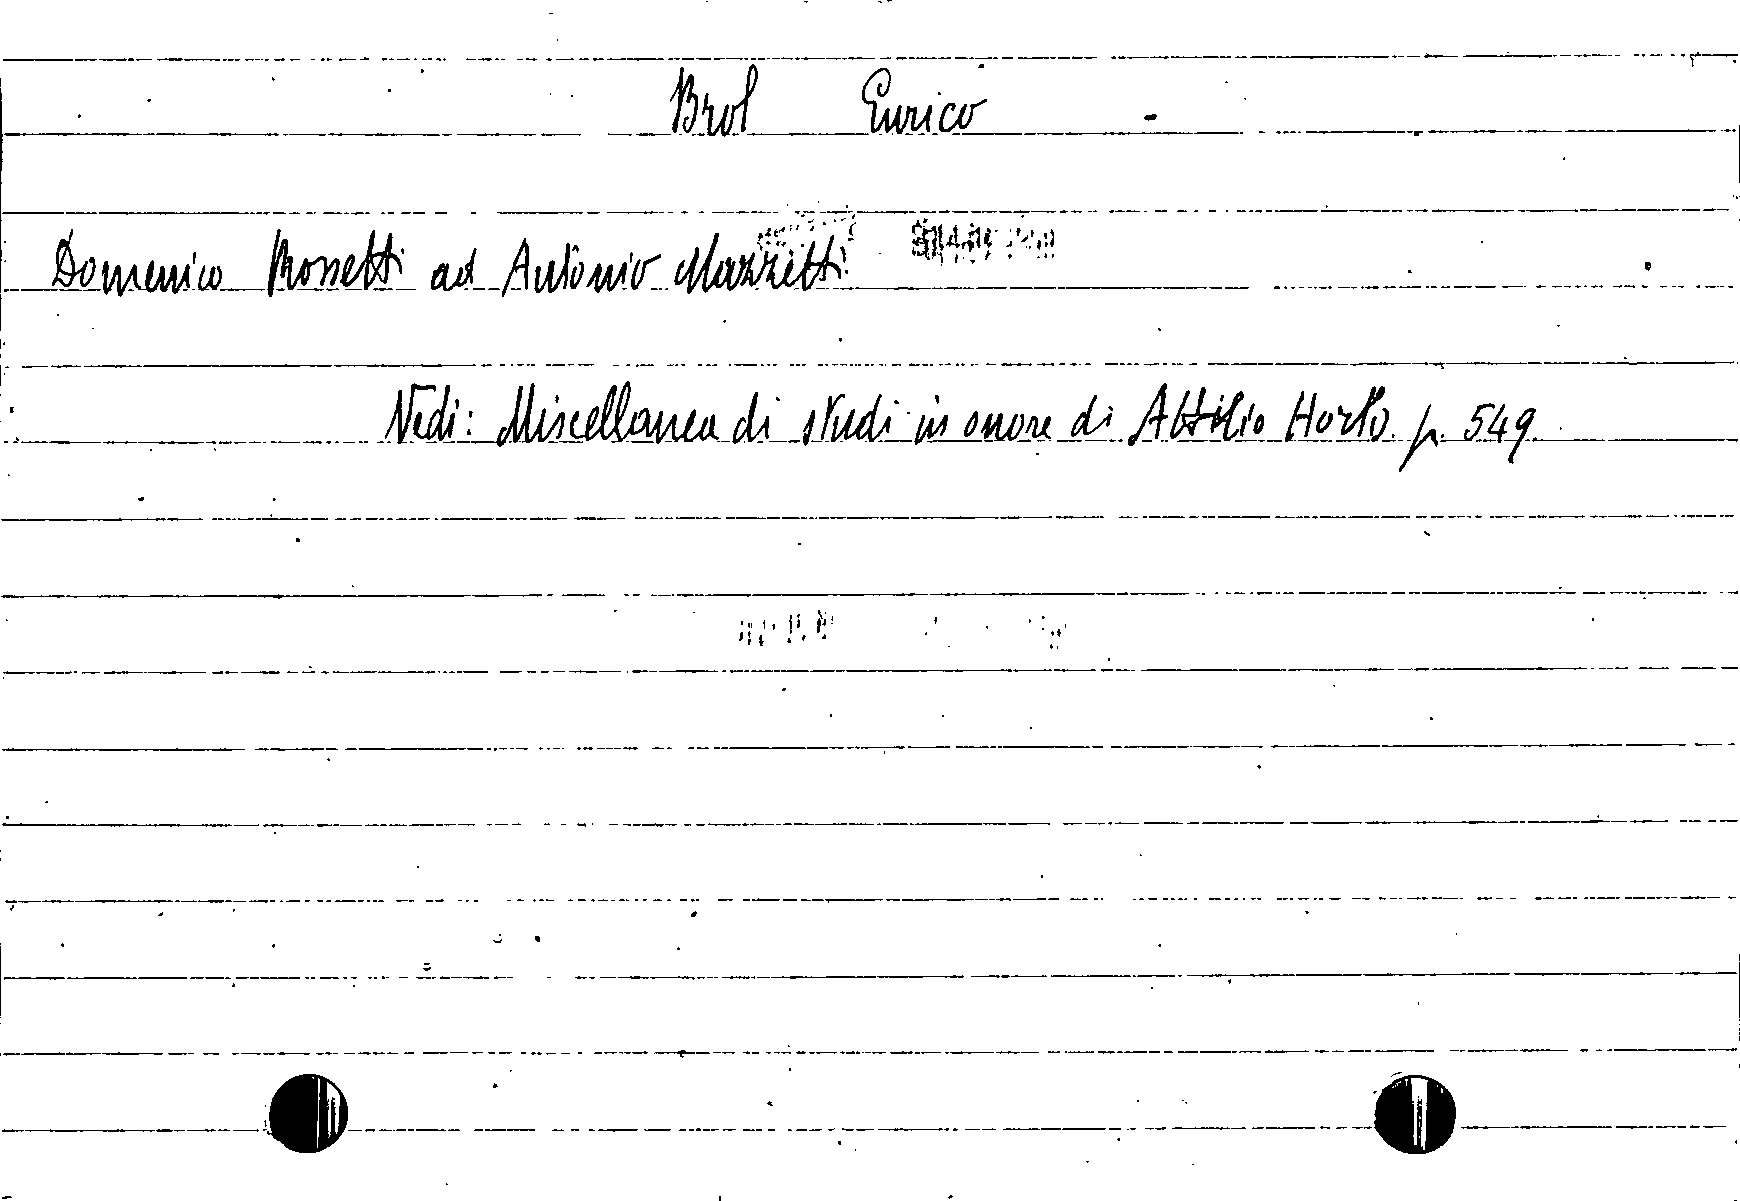 Brol Enrico -
Domenico Rossetti ad Antonio Mazzetti
Vedi: Miscellanea di studi in onore di Attilio Hortis p. 549.